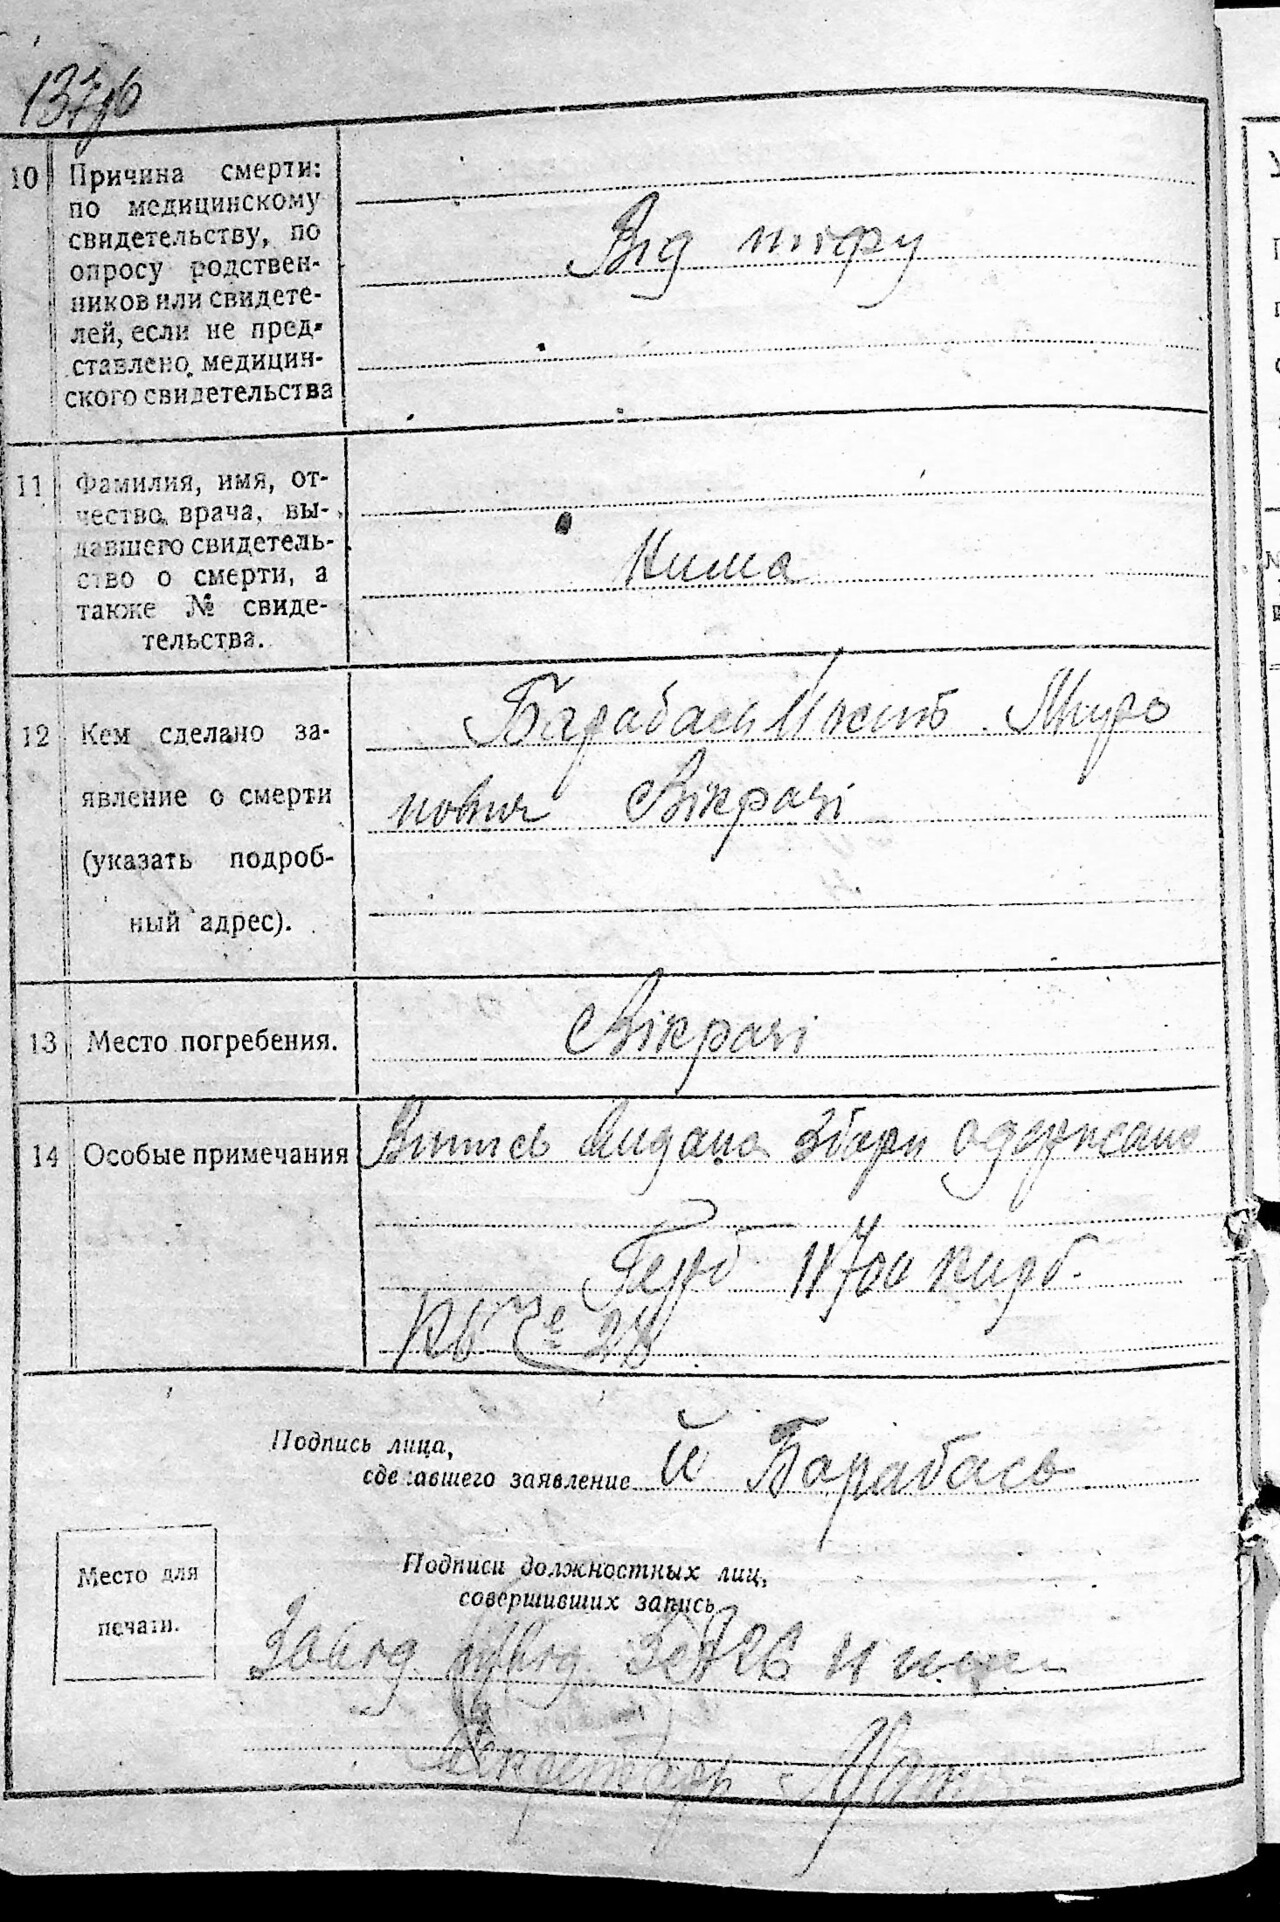 10 Причина смерти:
по медицинскому
свидетельству, по
опросу родствен-
ников или свидете-
лей, если не пред-
ставлено медицин-
ского свидетельства
Від тифу
11 Фамилия, имя, от-
чество врача, вы-
давшего свидетель-
ство о смерти, а
также № свиде-
тельства.
Нима
12 Кем сделано за-
явление о смерти
(указать подроб-
ный адрес).
Барабась Йосип Миро
нович Вікрачі
13 Место погребения.
Вікрачі
14 Особые примечания
Випись видана Збори одержано
11700 карб.
Кв № 28
Подпись лица,
сделавшего заявление Й Барабась
Место для
печати.
Подписи должностных лиц,
совершивших запись
Завід
Секретарь